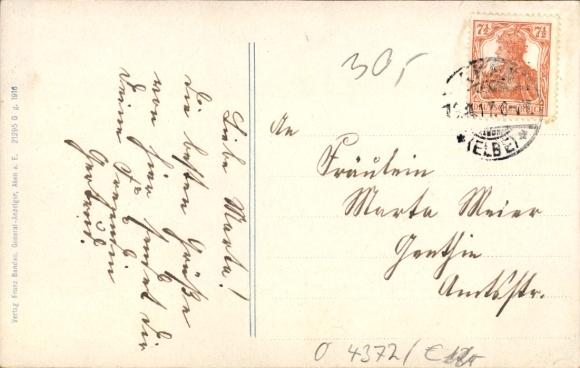 Liebe Marta!
Die besten Grüße
von hier sendet dir
Deine Freundin
Gertrud.
An
Fräulein
Marta Meier
Genthin
Amtsstr.
7½ 7½
*(ELBE)*
30,-
O 4372/
Verlag Franz Bandau, General-Anzeiger, Aken a. E. 21295 G g. 1916